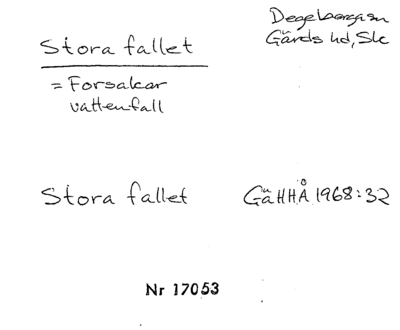 Stora fallet
Degeberga sn
Gärds hd, Sk
= Forsakar
vattenfall
Stora fallet GäHHÅ 1968:32
Nr 17053